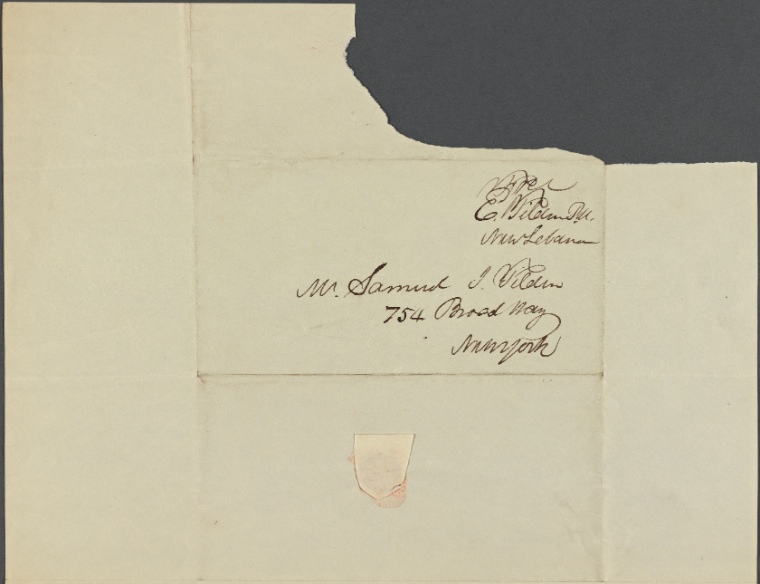 Free
E. Tilden P.M.
New Lebanon
Mr. Samuel J. Tilden
754 Broad Way
New York